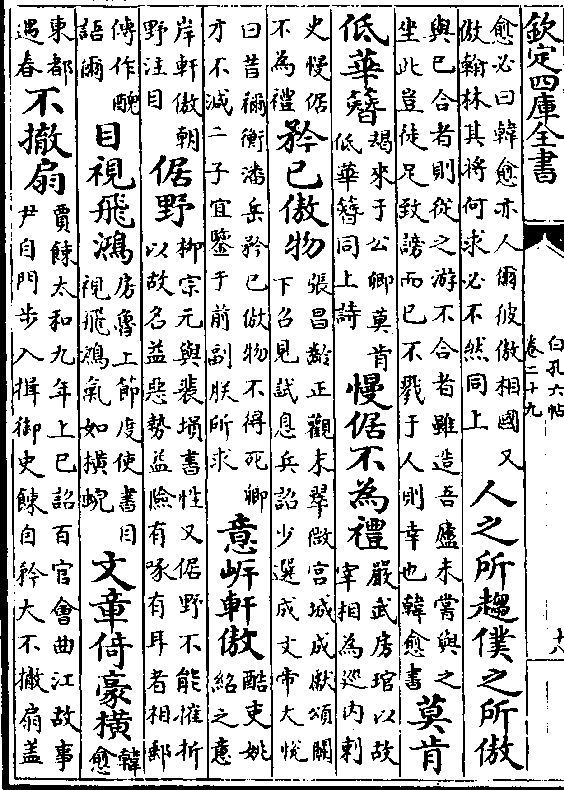 欽定四庫全書
白孔六帖
卷二十九
十八
愈必曰韓愈亦人爾彼傲相國又
傲翰林其將何求必不然同上
人之所趨僕之所傲
與已合者則從之游不合者雖造吾廬未嘗與之
坐此豈徒足致謗而已不戮于人則幸也韓愈書
莫肯
低華簪
朅來于公卿莫肯
低華簪同上詩
慢倨不為禮
嚴武房琯以故
宰相為巡內刺
史慢倨
不為禮
矜已傲物
張昌齡正觀末翠微宮城成獻頌闕
下召見試息兵詔少選成文帝大悅
曰昔禰衡潘岳矜已傲物不得死卿
才不減二子宜鑒于前副朕所求
意岍軒傲
酷吏姚
紹之意
岸軒傲朝
野注目
倨野
柳宗元與裴塤書性又倨野不能摧折
以故名益惡勢益險有喙有耳者相郵
傅作醜
語爾
目視飛鴻
房魯上節度使書目
視飛鴻氣如橫蜺
文章倚豪橫
韓
愈
東都
遇春
不撤扇
賈餗太和九年上巳詔百官會曲江故事
尹自門步入揖御史餗自矜大不撤扇蓋